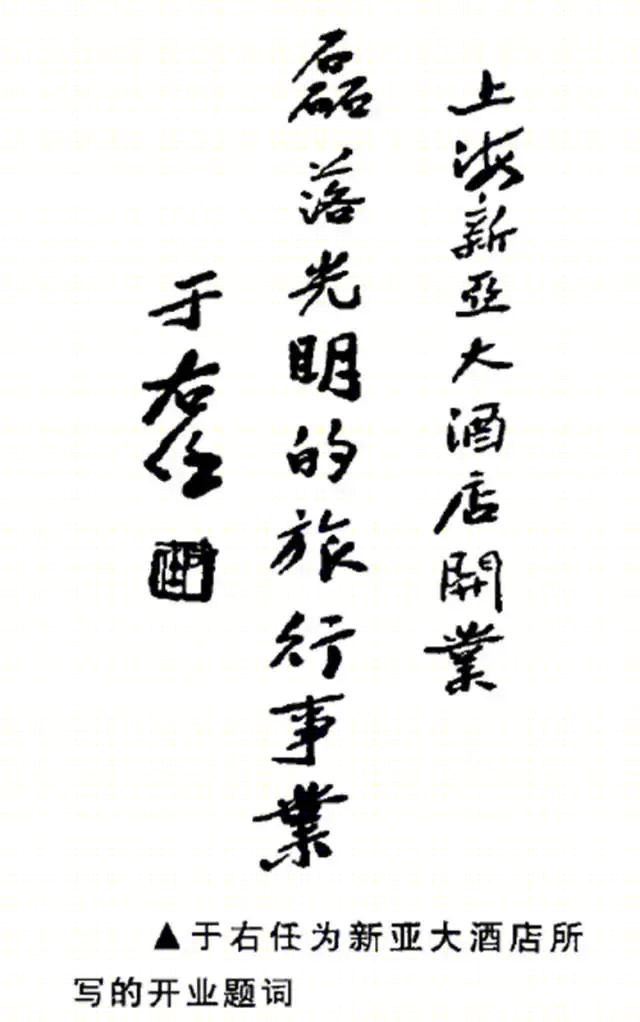 上海新亞大酒店開業
磊落光明的旅行事業
于右任
▲于右任为新亚大酒店所
写的开业题词